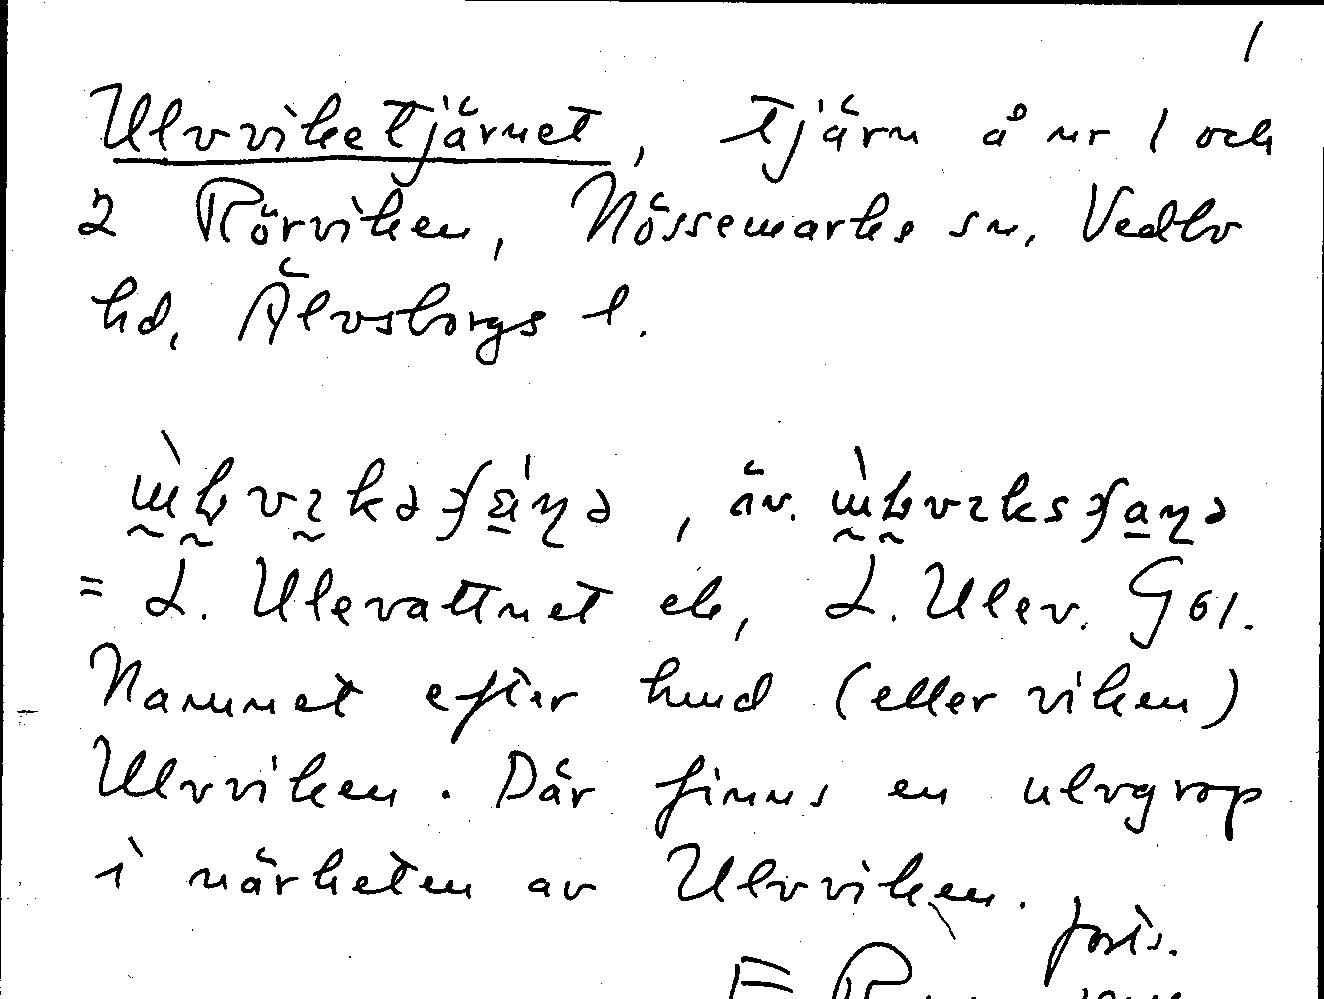 1
Ulvviketjärnet, tjärn å nr 1 och
2 Rörviken, Nössemarks sn, Vedbo
hd, Älvsborgs l.
, äv.
= L. Ulevattnet ek, L. Ulev. G 61.
Namnet efter hmd (eller viken)
Ulvviken. Där finns en ulvgrop
i närheten av Ulvviken.
forts.